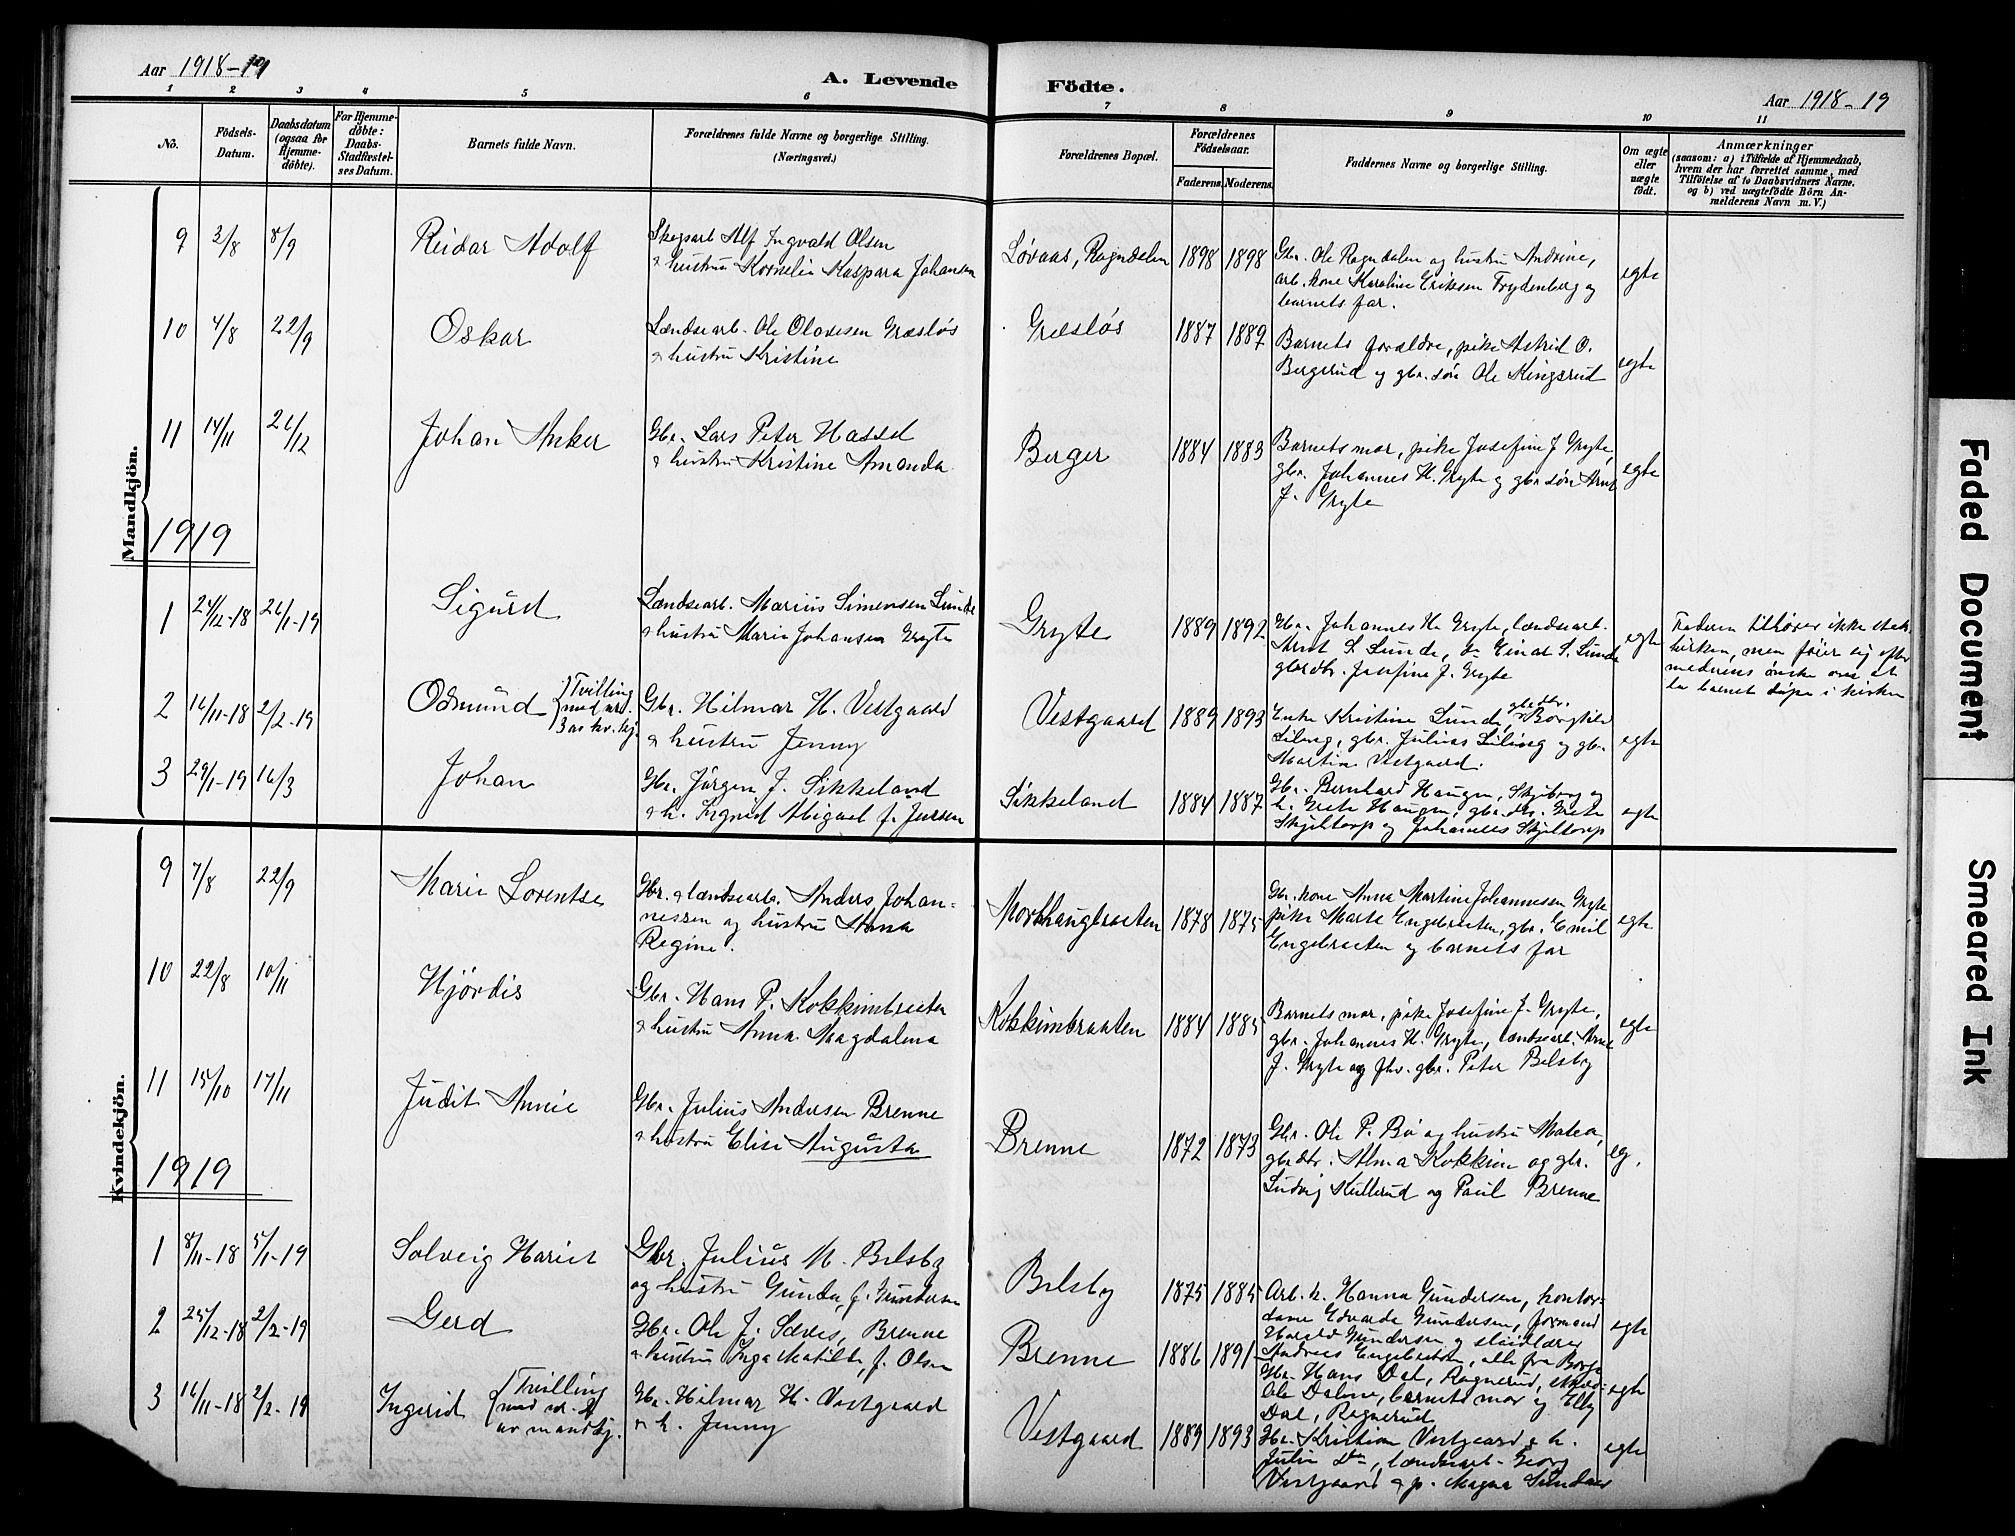 Aar 1918-19
A. Levende Födte.
Aar 1918-19
1 2 3 4 5 6 7 8 9 10 11
No.
Födsels-Datum.
Daabsdatum (ogsaa for Hjemme-döbte).
For Hjemme-döbte: Daabs-Stadfæstel-ses Datum.
Barnets fulde Navn.
Forældrenes fulde Navne og borgerlige Stilling. (Næringsvei.)
Forældrenes Bopæl.
Forældrenes Födselsaar.
Faderens. Moderens.
Faddernes Navne og borgerlige Stilling.
Om ægte eller uægte födt.
Anmærkninger
(saasom: a) i Tilfælde af Hjemmedaab,
hvem der har forrettet samme, med
Tilföielse af to Daabsvidners Navne.
og b) ved uægtefödte Börn An-
melderens Navn m. V.)
Mandkjön.
9 3/8 8/9 Reidar Adolf
Skogsarb Alf Ingvald Olsen
& hustru Kornelia Kaspara Johansen
Løvaas, Rogndalen 1898 1898
Gbr. Ole Rogndalen og hustru Andrine,
arb. kone Karoline Eriksen Frydenberg og
barnets far.
egte
10 4/8 22/9 Oskar
Lændsearb. Ole Olavesen Græsløs
& hustru Kristine
Græsløs 1887 1889
Barnets forældre, pike Astrid O.
Bergerud og gbr. søn Ole Kingsrud
egte
11 14/11 26/12 Johan Anker
Gbr. Lars Peter Hassel
& hustru Kristine Amanda
Berger 1884 1883
Barnets mor, pike Josefine J Gryte,
gbr. Johannes H. Gryte og gbr søn Arne
J. Gryte
egte
1919
1 24/12-18 26/1-19 Sigurd
Lændsearb. Marius Simensen Lunde
& hustru Marie Johansen Gryte
Gryte 1889 1892
Gbr. Johannes H. Gryte, lændsearb.
Arnt S. Lunde, do Einar S. Lunde
gbrdtr. Josefine J. Gryte
egte
Faderen tilhører ikke stats-
kirken, men føier sig efter
moderens ønske om at
la barnet døpe i kirken
2 16/11-18 2/2-19 Odmund
Tvilling med nr. 3 av kv.kj.
Gbr. Hilmar H. Vestgaard
& hustru Jenny
Vestgaard 1889 1893
Enke Kristine Lunde, gbrdtr. Borghild
Liling, gbr. Julius Liling og gbr.
Martin Vestgaard.
egte
3 29/1-19 16/3 Johan
Gbr. Jørgen J. Sikkeland
& h. Ingrid Abigael f. Jensen
Sikkeland 1884 1887
Gbr. Bernhard Haugen, Skjeberg og
h. Grete Haugen, gbr.dtr. Grete
Skjeltorp og Johannes Skjeltorp
egte
Kvindekjön.
9 7/8 22/9 Marie Lorentse
Gbr. & lændsearb. Anders Johan-
nessen og hustru Anna
Regine.
Morkhaugbraaten 1878 1875
Gbr. kone Anna Martine Johannesen Gryte
pike Marte Engebraaten, gbr. Emil
Engebraaten og barnets far
egte
10 22/8 10/11 Hjørdis
Gbr. Hans P. Kokkimbraaten
& hustru Anna Magdalena
Kokkimbraaten 1884 1885
Barnets mor, pike Josefine J. Gryte,
gbr. Johannes H. Gryte, lændsearb. Arne
J. Gryte og fhv. gbr. Peter Bilsby
egte
11 15/10 17/11 Judit Annie
Gbr. Julius Andersen Brenne
& hustru Elise Augusta
Brenne 1872 1873
Gbr. Ole P. Bø og hustru Matea,
gbrdtr. Alma Kokkim og gbr.
Ludvig Kullerud og Paul Brenne
eg.
1919
1 8/11-18 5/1-19 Solveig Hariet
Gbr. Julius M. Bilsby
og hustru Gunda, f. Gundersen
Bilsby 1875 1885
Arb. h. Hanna Gundersen, kontor-
dame Edvarda Gundersen, formand
Harald Gundersen og
Andreas Engebretsen, alle fra Borge
egte
2 25/12-18 2/2-19 Gerd
Gbr. Ole J. Sæves, Brenne
& hustru Inga Matilde, f. Olsen
Brenne 1886 1891
Gbr. Hans Dal, Rognerud,
Ole Dalene, barnets mor og Elly
Dal, Rognerud
egte
3 16/11-18 2/2-19 Ingrid
Tvilling med nr. 2 av mandkj.
Gbr. Hilmar H. Vestgaard
& h. Jenny
Vestgaard 1889 1893
Gbr. Kristian Vestgaard & h.
Julie do, lændsearb. Georg
Vestgaard & p. Magna Sundaas
egte
Faded Document
Smeared Ink